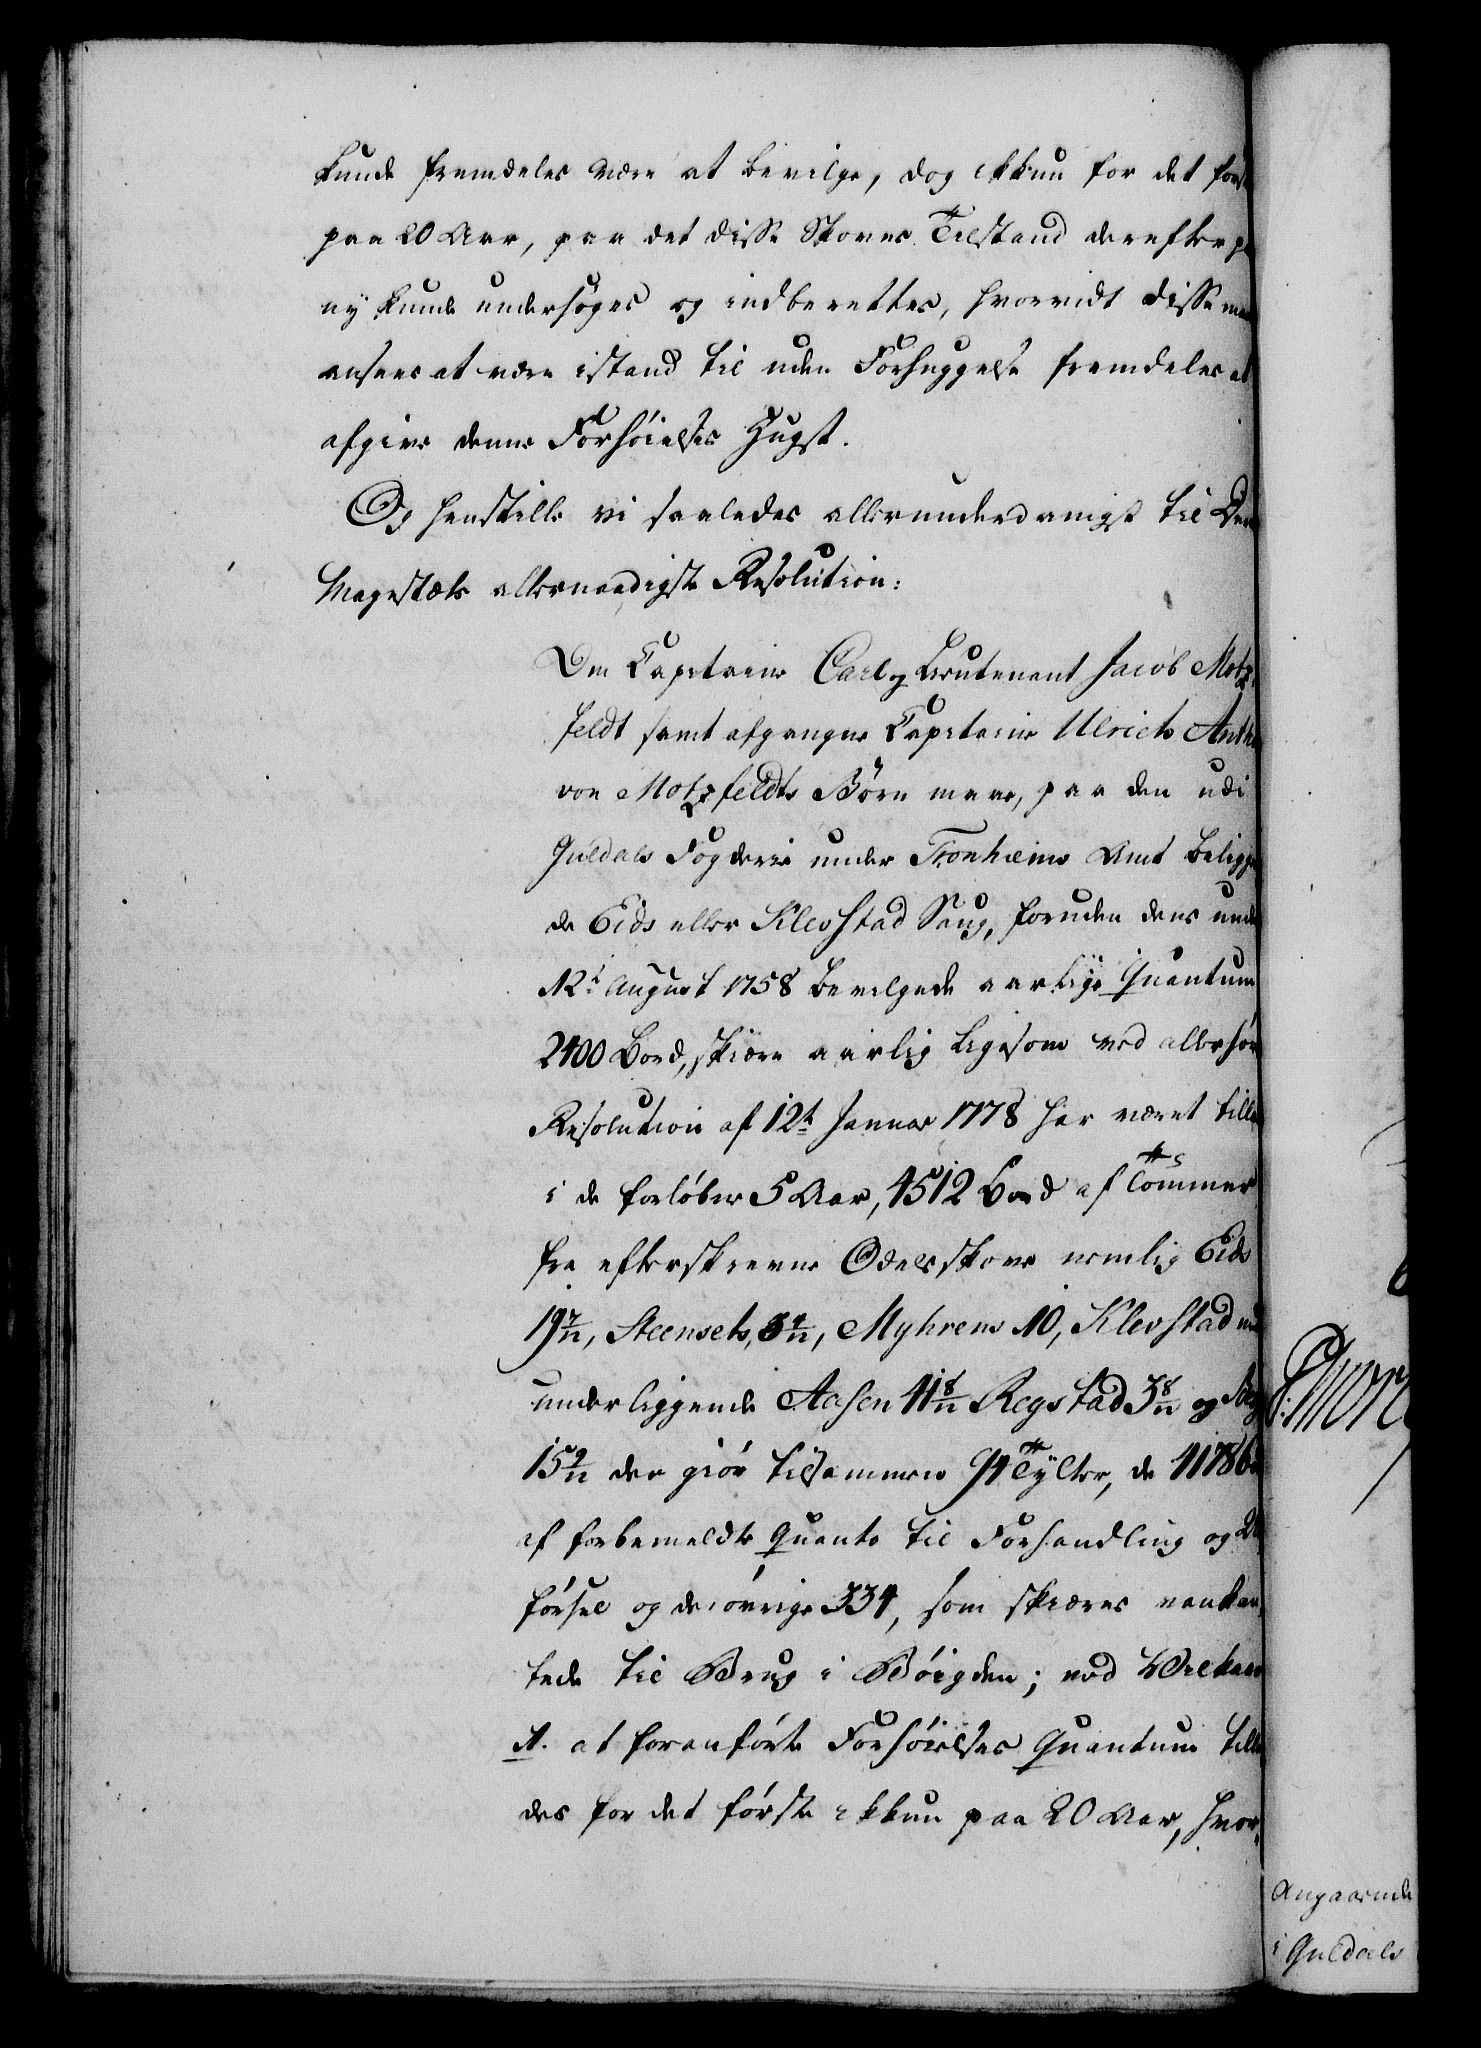 kunde fremdeles være at bevilge, dog ikkun for det
paa 20 Aar, paa det disse Skoves Tilstand derefter
ny kunde undersøges og indberettes, hvorvidt disse
ansees at være istand til uden Forhuggelse fremdeles at
afgive denne Forhøielses Hugst.
Og henstille vi saaledes allerunderdanigst til
Mayestæts allernaadigste Resolution:
Om Capitaine Carl og Lieutenant Jacob Motz-
feldt samt afgangne Capitaine Ulrich
von Motzfeldts Børn maae, paa den udi
Guldals Fogderie under Tronhiems Amt
de Eids eller Klevstad Saug, foruden dens
12t August 1758 bevilgede aarlige Quantum
2400 Bord, skiære aarlig ligesom ved
Resolution af 12t Januar 1778 har været
i de forløbne 5 Aar, 4512 Bord af Tømmer
fra efterskrevne Odelsskove nemlig Eids
19 7/12, Steensets, 3 4/12, Myhrens 10, Klevstad
underliggende Aasen 41 8/12 Regstad 3 8/12 og
15 9/12 der giør tilsammen 94 Tylter, de 4178
af forbemeldte Quanto til Forhandling og
førsel og de øvrige 334, som skiæres
tede til Brug i Bøigden; ved
A. at foranførte Forhøielses Quantum
des for det første ikkun paa 20 Aar, hvor-
Angaaende
i Guldals